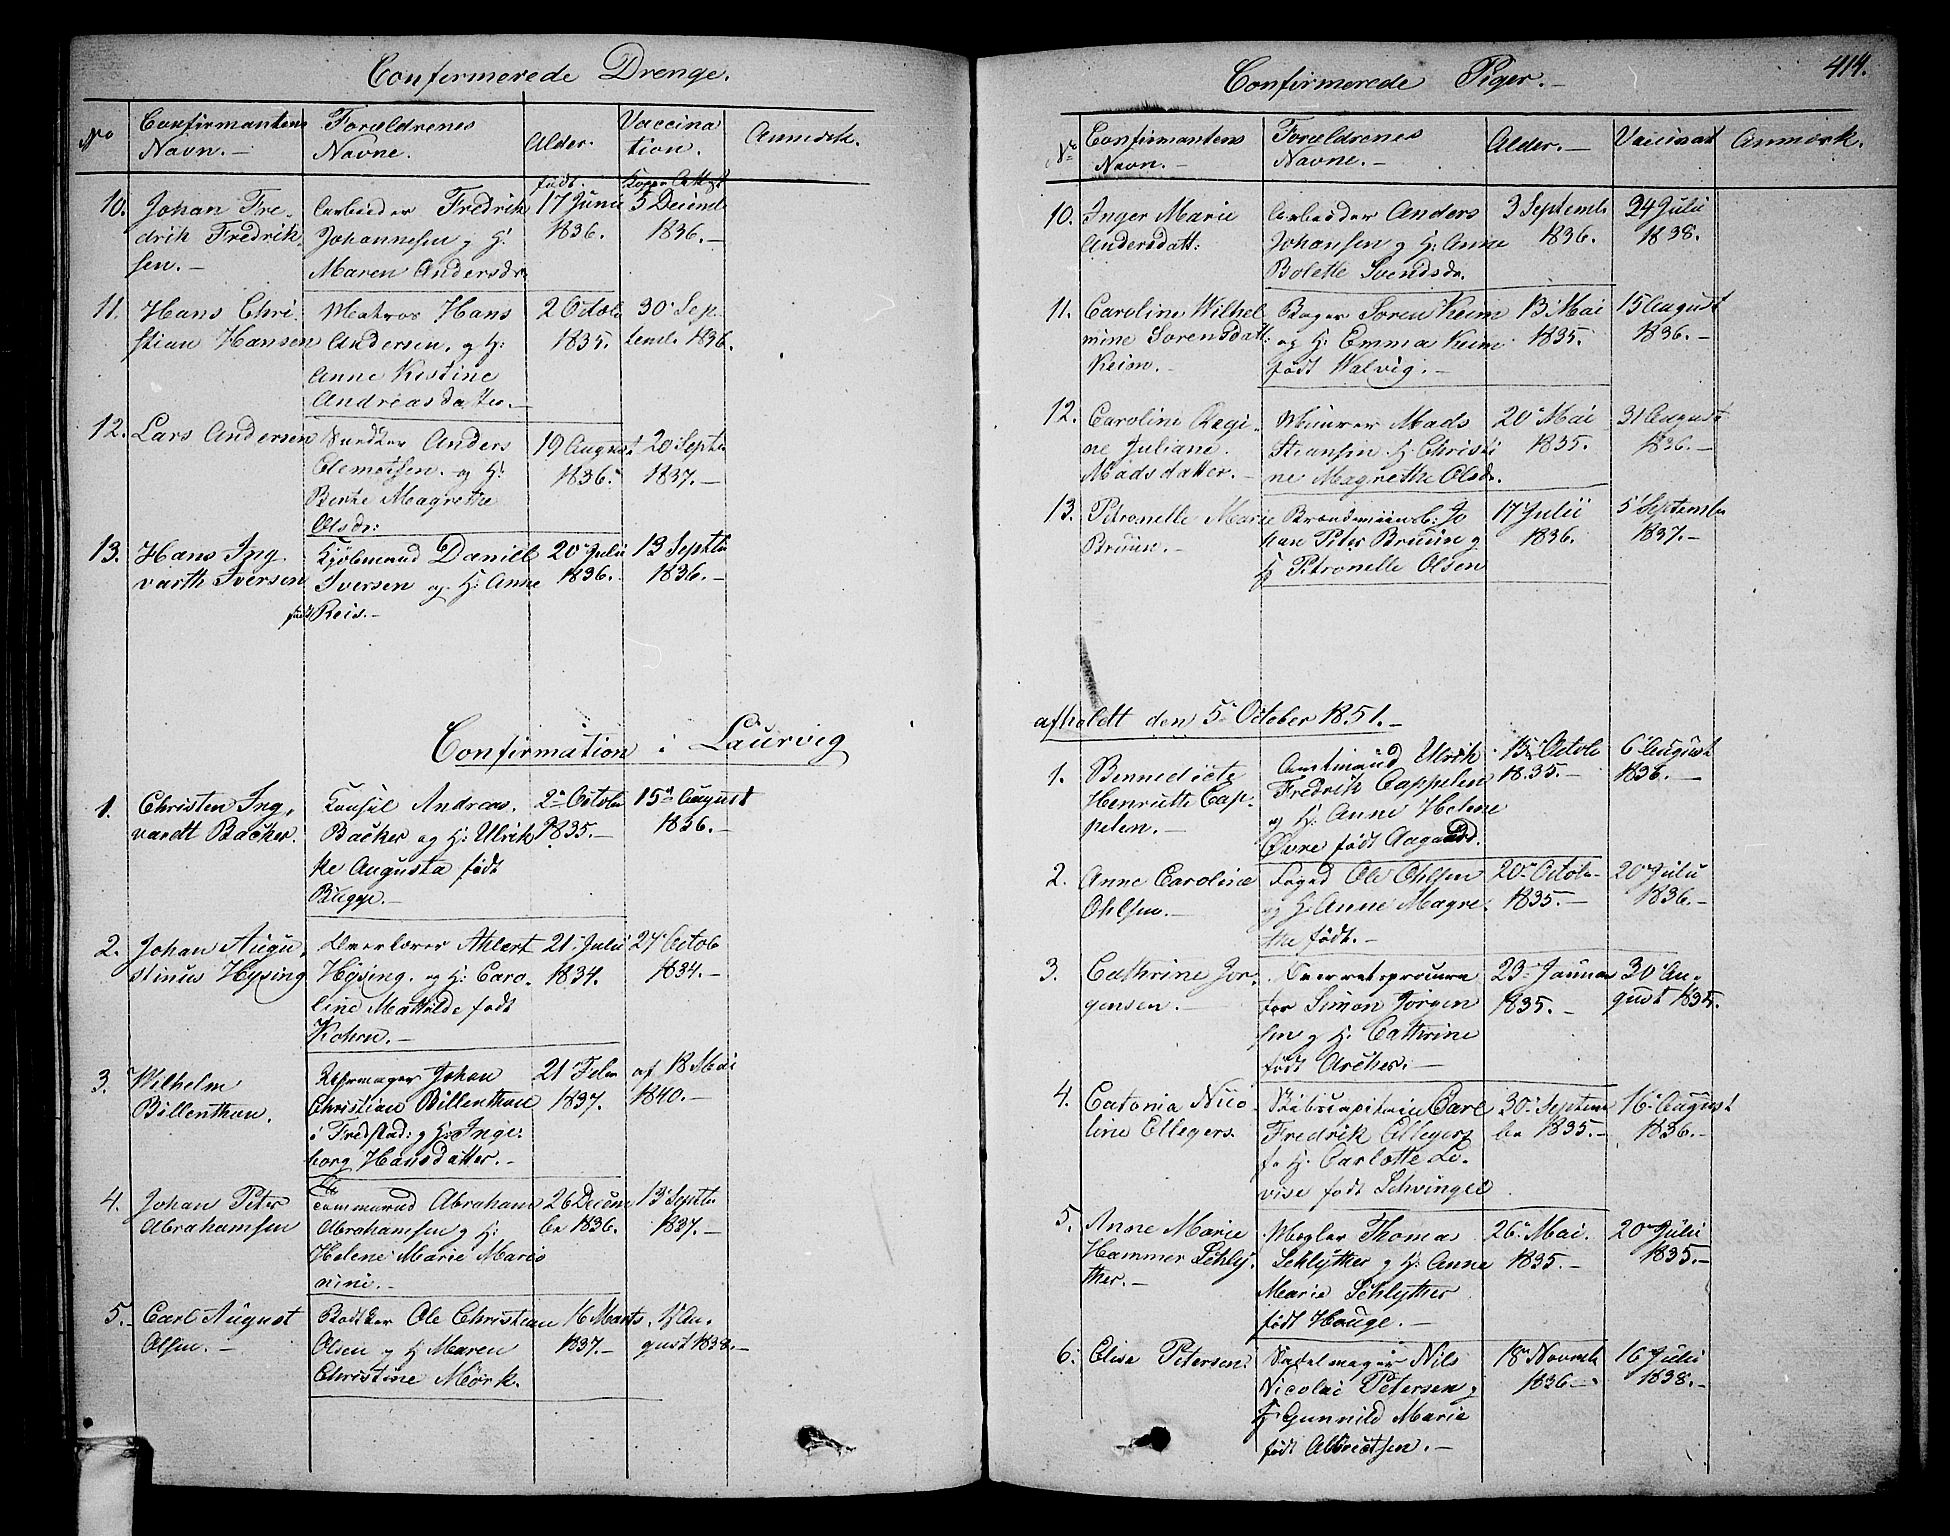 Confirmerede Drenge.
No
Confirmantens
Navn.
Forældrenes
Navne.
Alder.
Vaccina
tion.
Anmerk.
født.
10. Johan Fre-
drik Fredrik
sen.
Arbeider Fredrik
Johannesen og H:
Maren Andersdr.
17 Junii
1836.
5 Decemb
1836.
11. Hans Chri-
stian Hansen
Matros Hans
Andersen, og H:
Anne Kistine
Andreasdatter.
2 Octob
1835.
30 Sep-
temb. 1836.
12. Lars Andersen
Snedker Anders
Clemetsen. og H:
Berte Magrethe
Olsdr:
19 August
1836.
20 Septb
1837.
13. Hans Ing
varth Iversen
Kjøbmand Daniel
Iversen og H: Anne
født Reis.
20 Julii
1836.
13 Septb
1836.
Confirmation i Laurvig
1. Christen Ing-
vardt Backer.
Konsul Andreas
Backer og H: Ulrik
ke Augusta født
Bugge.
2 Octob
1835.
15 August
1836.
2. Johan Augu
stinus Hysing
Overlærer Ahlert
Hysing. og H: Caro-
line Mathilde født
21 Julii
1834.
27 Octob
1834.
3. Wilhelm
Billenthon.
Rebmager Johan
Christian Billenthon
i Fredstad: og H: Inge-
borg Hansdatter.
21 Febr
1837.
af 18 Mai
1840.
4. Johan Peter
Abrahamsen
Tømmermd Abraham
Abrahamsen og H:
Helene Marie Maris
nini.
26 Decem
br 1836.
13 Septb
1837.
5. Carl August
Olsen.
Bødtker Ole Christian
Olsen og H Maren
Christine Mörk.
16 Marts
1837.
17 Au-
gust 1838.
414.
Confirmerede Piger.
No
Confirmantens
Navn.
Forældrenes
Navne.
Alder.
Vaccinat
Anmerk.
10. Inger Marie
Andersdatt:
Arbeider Anders
Johansen og H: Anne
Bolette Svendsdr.
3 Septemb
1836.
24 Julii
1838.
11. Caroline Wilhel
mine Sorensdatt:
Keim.
Bager Soren Keim
og H: Emma Keim
født Walvig.
13 Mai
1835.
15 August
1836.
12. Caroline Regi-
ne Juliane
Madsdatter.
Muurer Mads
Stiansen. H: Christi
ne Magrethe Olsdr.
20 Mai
1835.
31 August
1836.
13. Petronelle Marie
Bruun.
Jo
han Peter Bruun og
H Petronelle Olsen
17 Julii
1836.
5 Septembr
1837.
afholdt den 5 October 1851.
1. Bennedicte
Henriette Cap-
pelen.
Amtmand Ulrik
Fredrik Cappelen
og H: Anne Helene
Øvre født Aagaard.
15 Octob
1835.
6 August
1836.
2. Anne Caroline
Ohlsen.
Foged Ole Ohlsen
og H: Anne Magre-
the født.
20 Octob
1835.
20 Julii
1836.
3. Cathrine Jør-
gensen.
Overretsprocura
tor Simon Jørgen
sen og H: Cathrine
født Archer.
23 Januar
1835.
30 Au-
gust 1835.
4. Catonia Nico-
line Ellegers.
Skibscapitain Carl
Fredrik Ellegers
f. H: Carlotte Lo-
vise født Schvingel
30 Septem
br 1835.
16 August
1836.
5. Anne Marie
Hammer Schly-
ther.
Mægler Thomas
Schlyther og H: Anne
Marie Schlyther
født Houge.
26 Mai.
1835.
20 Julii
1835.
6. Elise Petersen
Sadelmager Nils
Nicolai Petersen og
H Gunnild Marie
født Albrictsen.
18 Novemb
1836.
16 Julii
1838.